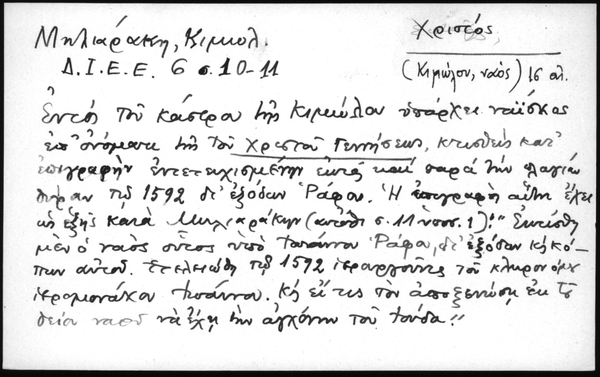 Μηλιαράκη, Κιμωλ.
Χριστός
Δ.Ι.Ε.Ε. 6 σ. 10-11
(Κιμώλου, ναός) 16 αι.
Εντός του κάστρου της Κιμώλου υπάρχει ναΐσκος
επ' ονόματι της του Χριστού Γεννήσεως, κτισθείς κατ'
επιγραφήν εντετειχισμένην εκεί παρά την πλαγίαν
θύραν τω 1592 δι' εξόδων Ράφου. Ἡ επιγραφή αύτη έχει
ως εξής κατά Μηλιαράκην (αυτόθι σ. 11 υποσ. 1): "Εκτίσθη
μεν ο ναός ούτος υπό Ιωάννου Ράφου, δι' εξόδων κ κό-
πων αυτού. Ετελειώθη τω 1592 ιερουργούντος του κληρονόμου
ιερομονάχου Ιωάννου. Κ εί τις τον αποξενώση εκ του
θείου ναού να έχη την αγχόνην του Ιούδα."